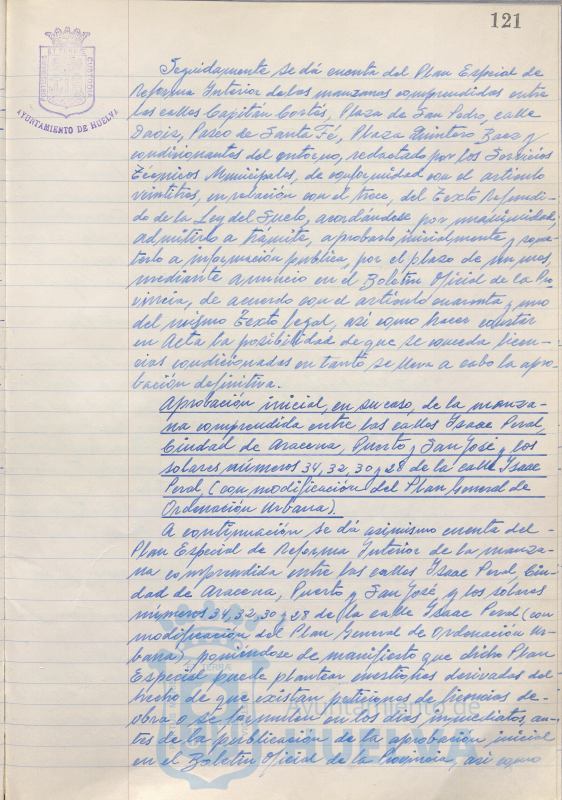 121
PORTUS MARIS
ET TERRAE
CUSTODIA
AYUNTAMIENTO DE HUELVA
Seguidamente se dá cuenta del Plan Especial de
Reforma Interior de las manzanas comprendidas entre
las calles Capitán Cortés, Plaza de San Pedro, calle
Daoiz, Paseo de Santa Fé, Plaza Quintero Baez y
condicionantes del entorno, redactado por los Servicios
Técnicos Municipales, de conformidad con el artículo
veintitres, en relación con el trece, del Texto Refundi-
do de la Ley del Suelo, acordándose por unanimidad,
admitirlo a trámite, aprobarlo inicialmente y some-
terlo a información pública, por el plazo de un mes,
mediante anuncio en el Boletín Oficial de la Pro-
vincia, de acuerdo con el artículo cuarenta y uno
del mismo Texto legal, así como hacer constar
en Acta la posibilidad de que se conceda licen-
cias condicionadas en tanto se lleva a cabo la apro-
bación definitiva.
Aprobación inicial, en su caso, de la manza-
na comprendida entre las calles Isaac Peral,
Ciudad de Aracena, Puerto y San José y los
solares números 34, 32, 30 y 28 de la calle Isaac
Peral, (con modificación del Plan General de
Ordenación Urbana).
A continuación se dá asimismo cuenta del -
Plan Especial de Reforma Interior de la manza-
na comprendida entre las calles Isaac Peral, Ciu-
dad de Aracena, Puerto y San José, y los solares
números 34, 32, 30 y 28 de la calle Isaac Peral (con
modificación del Plan General de Ordenación Ur-
bana), poniéndose de manifiesto que dicho Plan
Especial puede plantear cuestiones derivadas del
hecho de que existan peticiones de licencias de -
obra o se formulen en los días inmediatos, an-
tes de la publicación de la aprobación inicial
en el Boletín Oficial de la Provincia, así como
Ayuntamiento de
HUELVA